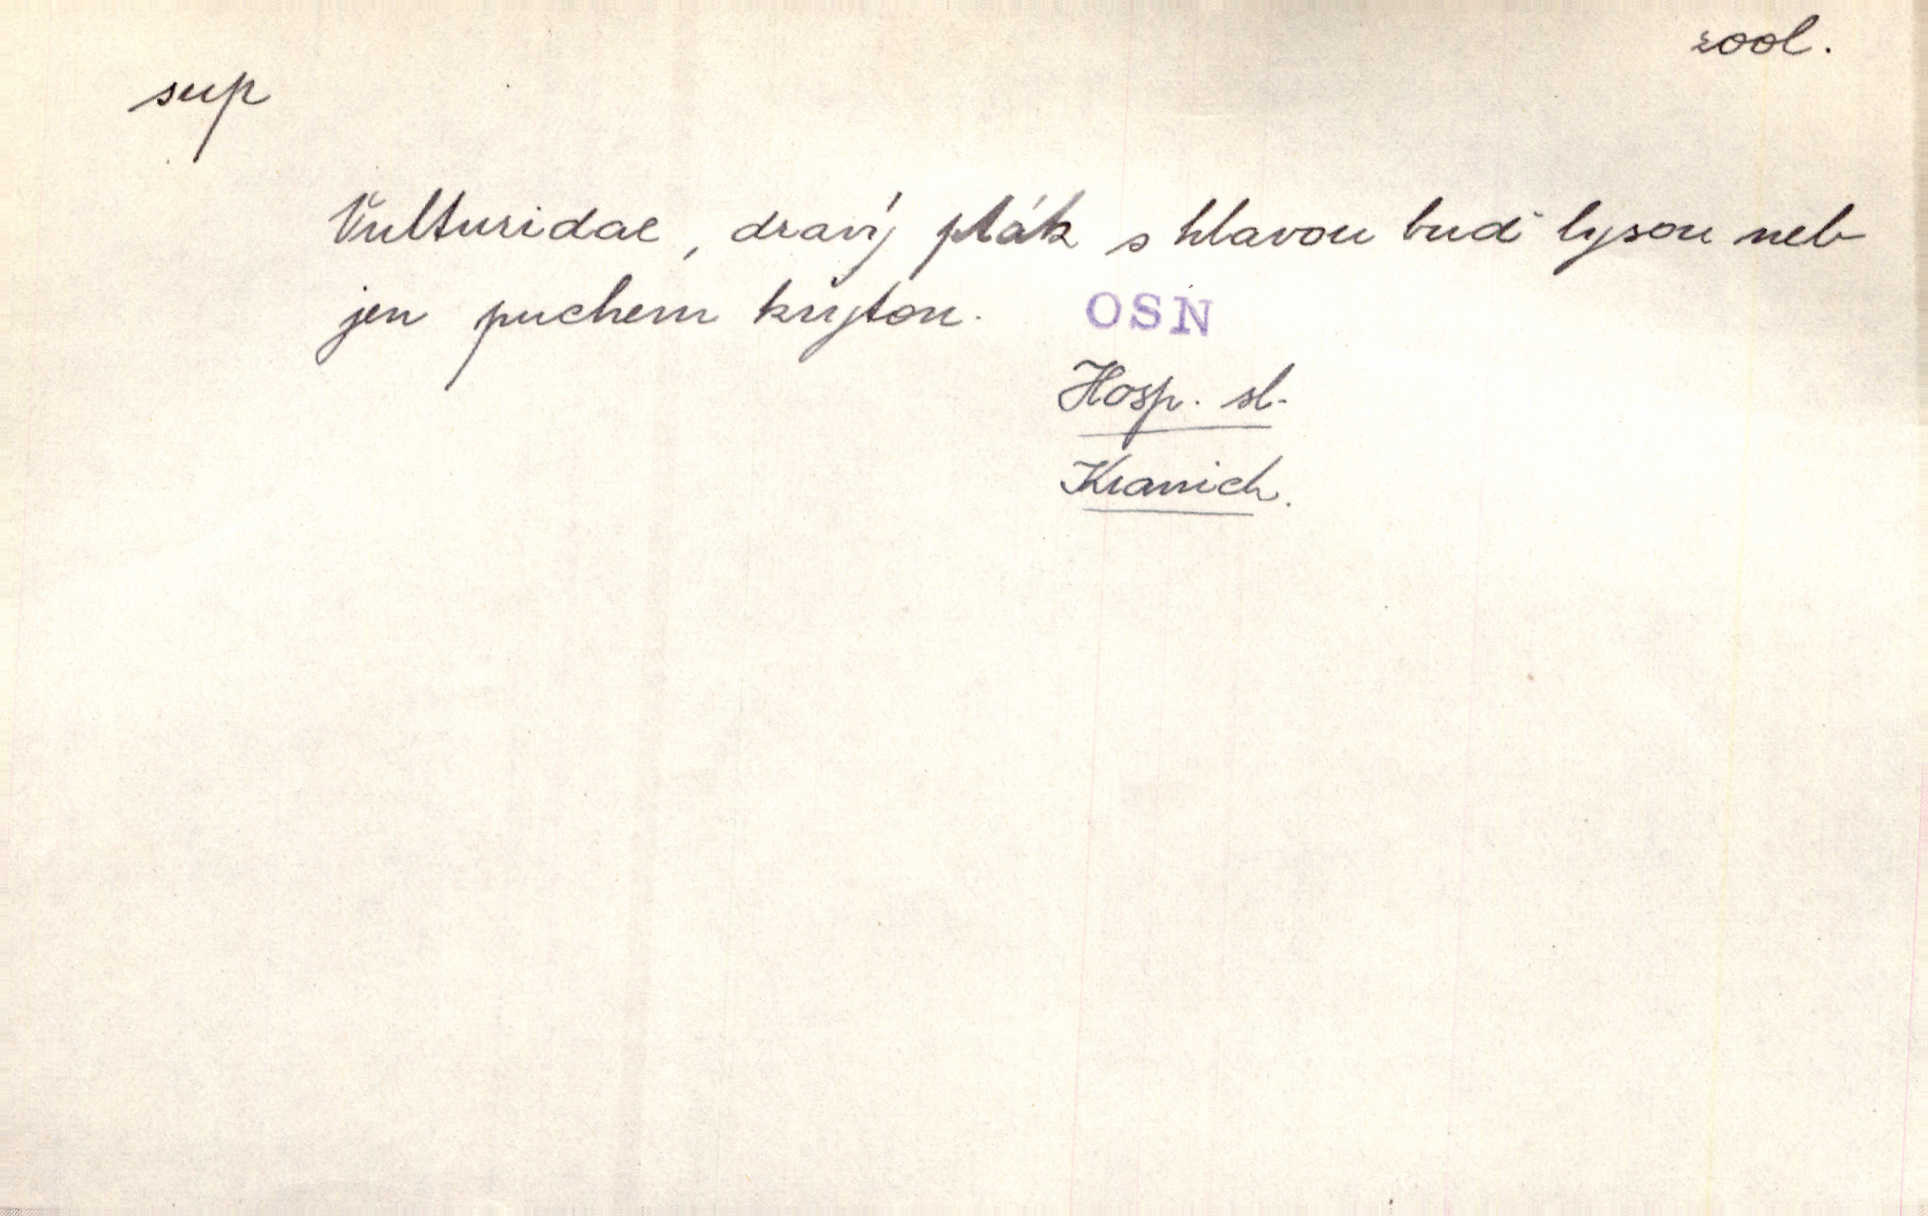 zool.
sup
Vulturidae, dravý pták s hlavou buď lysou neb
jen puchem krytou.
OSN
Hosp. sl.
Kranich.